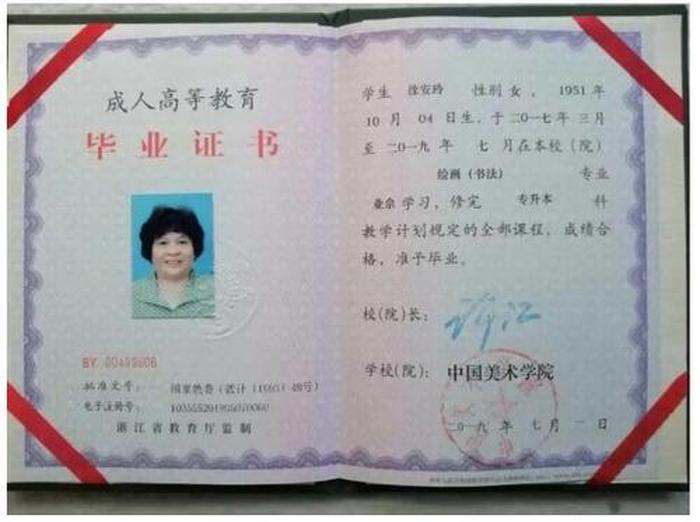 成人高等教育
毕业证书
BY 00499606
批准文号:
国家教委(教计[1993]48号)
电子注册号:
浙江省教育厅监制
学生 徐安玲 性别 女, 1951年
10月 04日生, 于二〇一七年 三月
至 二〇一九年 七月在本校(院)
绘画(书法) 专业
业余 学习, 修完 专升本 科
教学计划规定的全部课程, 成绩合
格, 准予毕业。
校(院)长: 许江
学校(院): 中国美术学院
二〇一九年 七月 一日